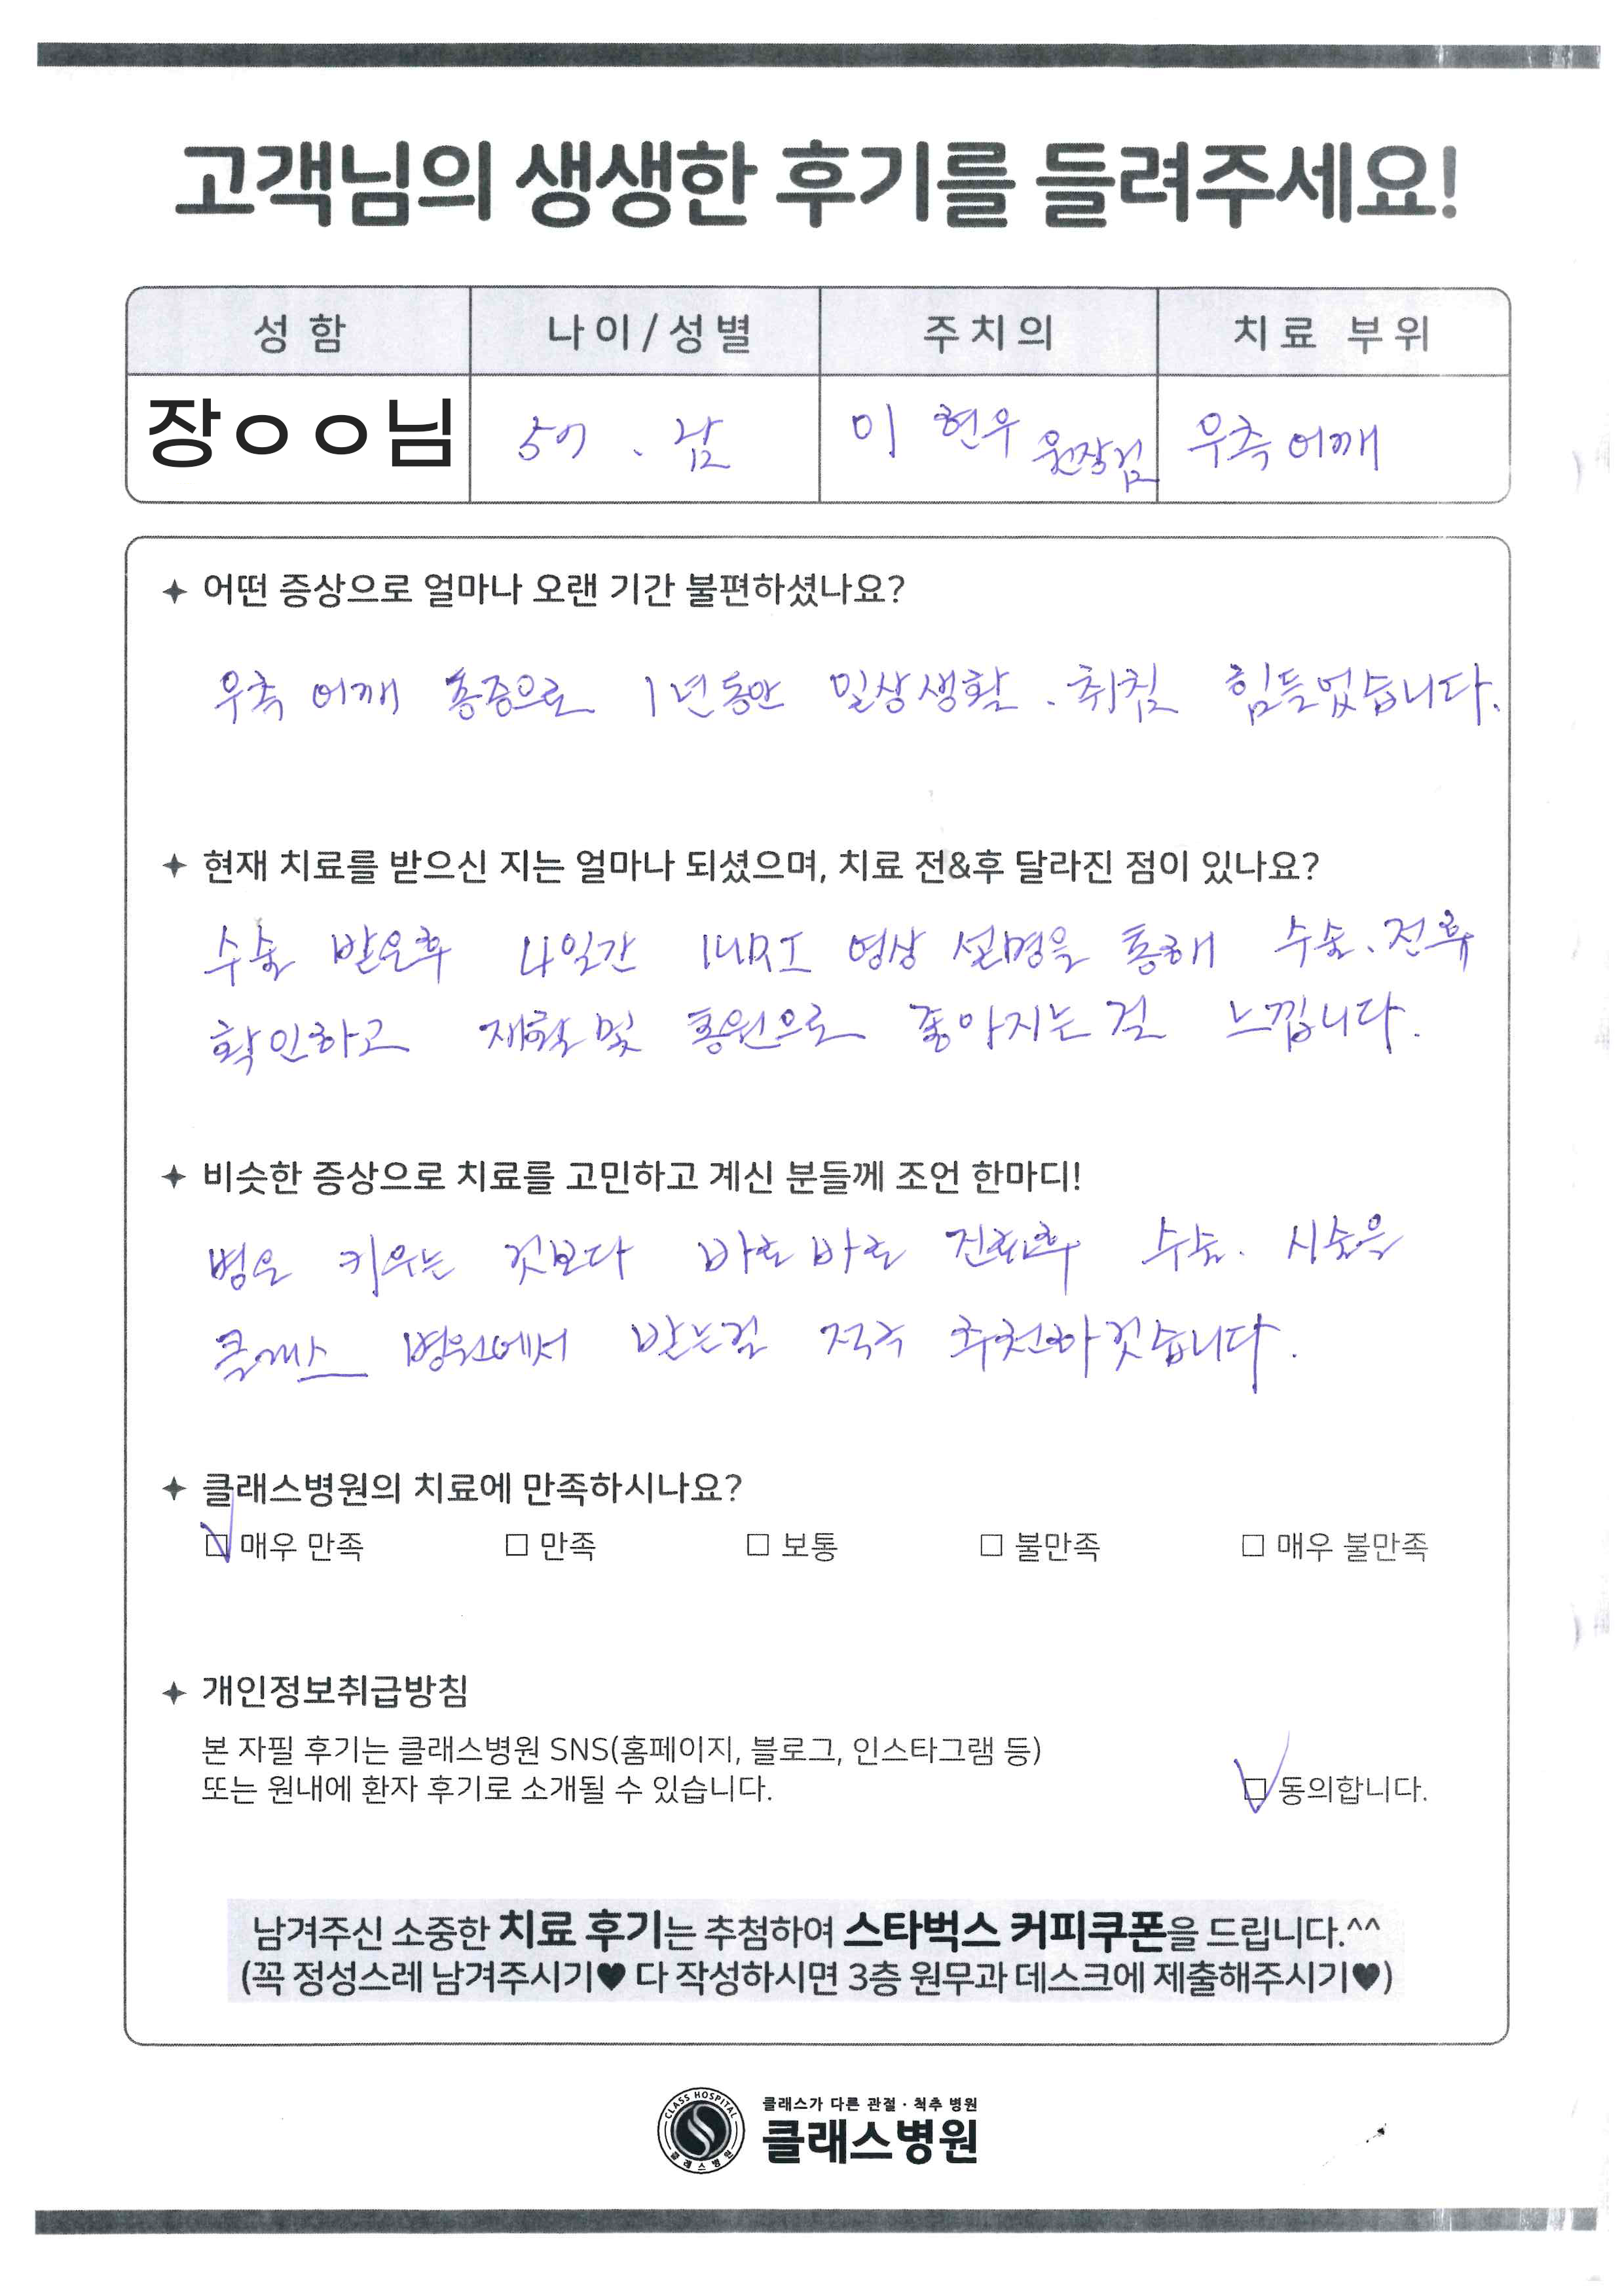 고객님의 생생한 후기를 들려주세요!
성함 나이/성별 주치의 치료 부위
장ㅇㅇ님 57 . 남 이 현우 원장님 우측 어깨
어떤 증상으로 얼마나 오랜 기간 불편하셨나요?
우측 어깨 통증으로 1년동안 일상생활 . 취침 힘들었습니다.
현재 치료를 받으신 지는 얼마나 되셨으며, 치료 전&후 달라진 점이 있나요?
수술 받은후 4일간 MRI 영상 설명을 통해 수술.전후
확인하고 재활및 통원으로 좋아지는걸 느낍니다.
비슷한 증상으로 치료를 고민하고 계신 분들께 조언 한마디!
병은 키우는 것보다 바로바로 진료후 수술. 시술을
클래스 병원에서 받는걸 적극 추천하겟습니다.
클래스병원의 치료에 만족하시나요?
매우 만족 만족 보통 불만족 매우 불만족
개인정보취급방침
본 자필 후기는 클래스병원 SNS(홈페이지, 블로그, 인스타그램 등)
또는 원내에 환자 후기로 소개될 수 있습니다. 동의합니다.
남겨주신 소중한 치료 후기는 추첨하여 스타벅스 커피쿠폰을 드립니다.^^
(꼭 정성스레 남겨주시기♥ 다 작성하시면 3층 원무과 데스크에 제출해주시기♥)
CLASS HOSPITAL
클래스병원
클래스가 다른 관절·척추 병원
클래스병원